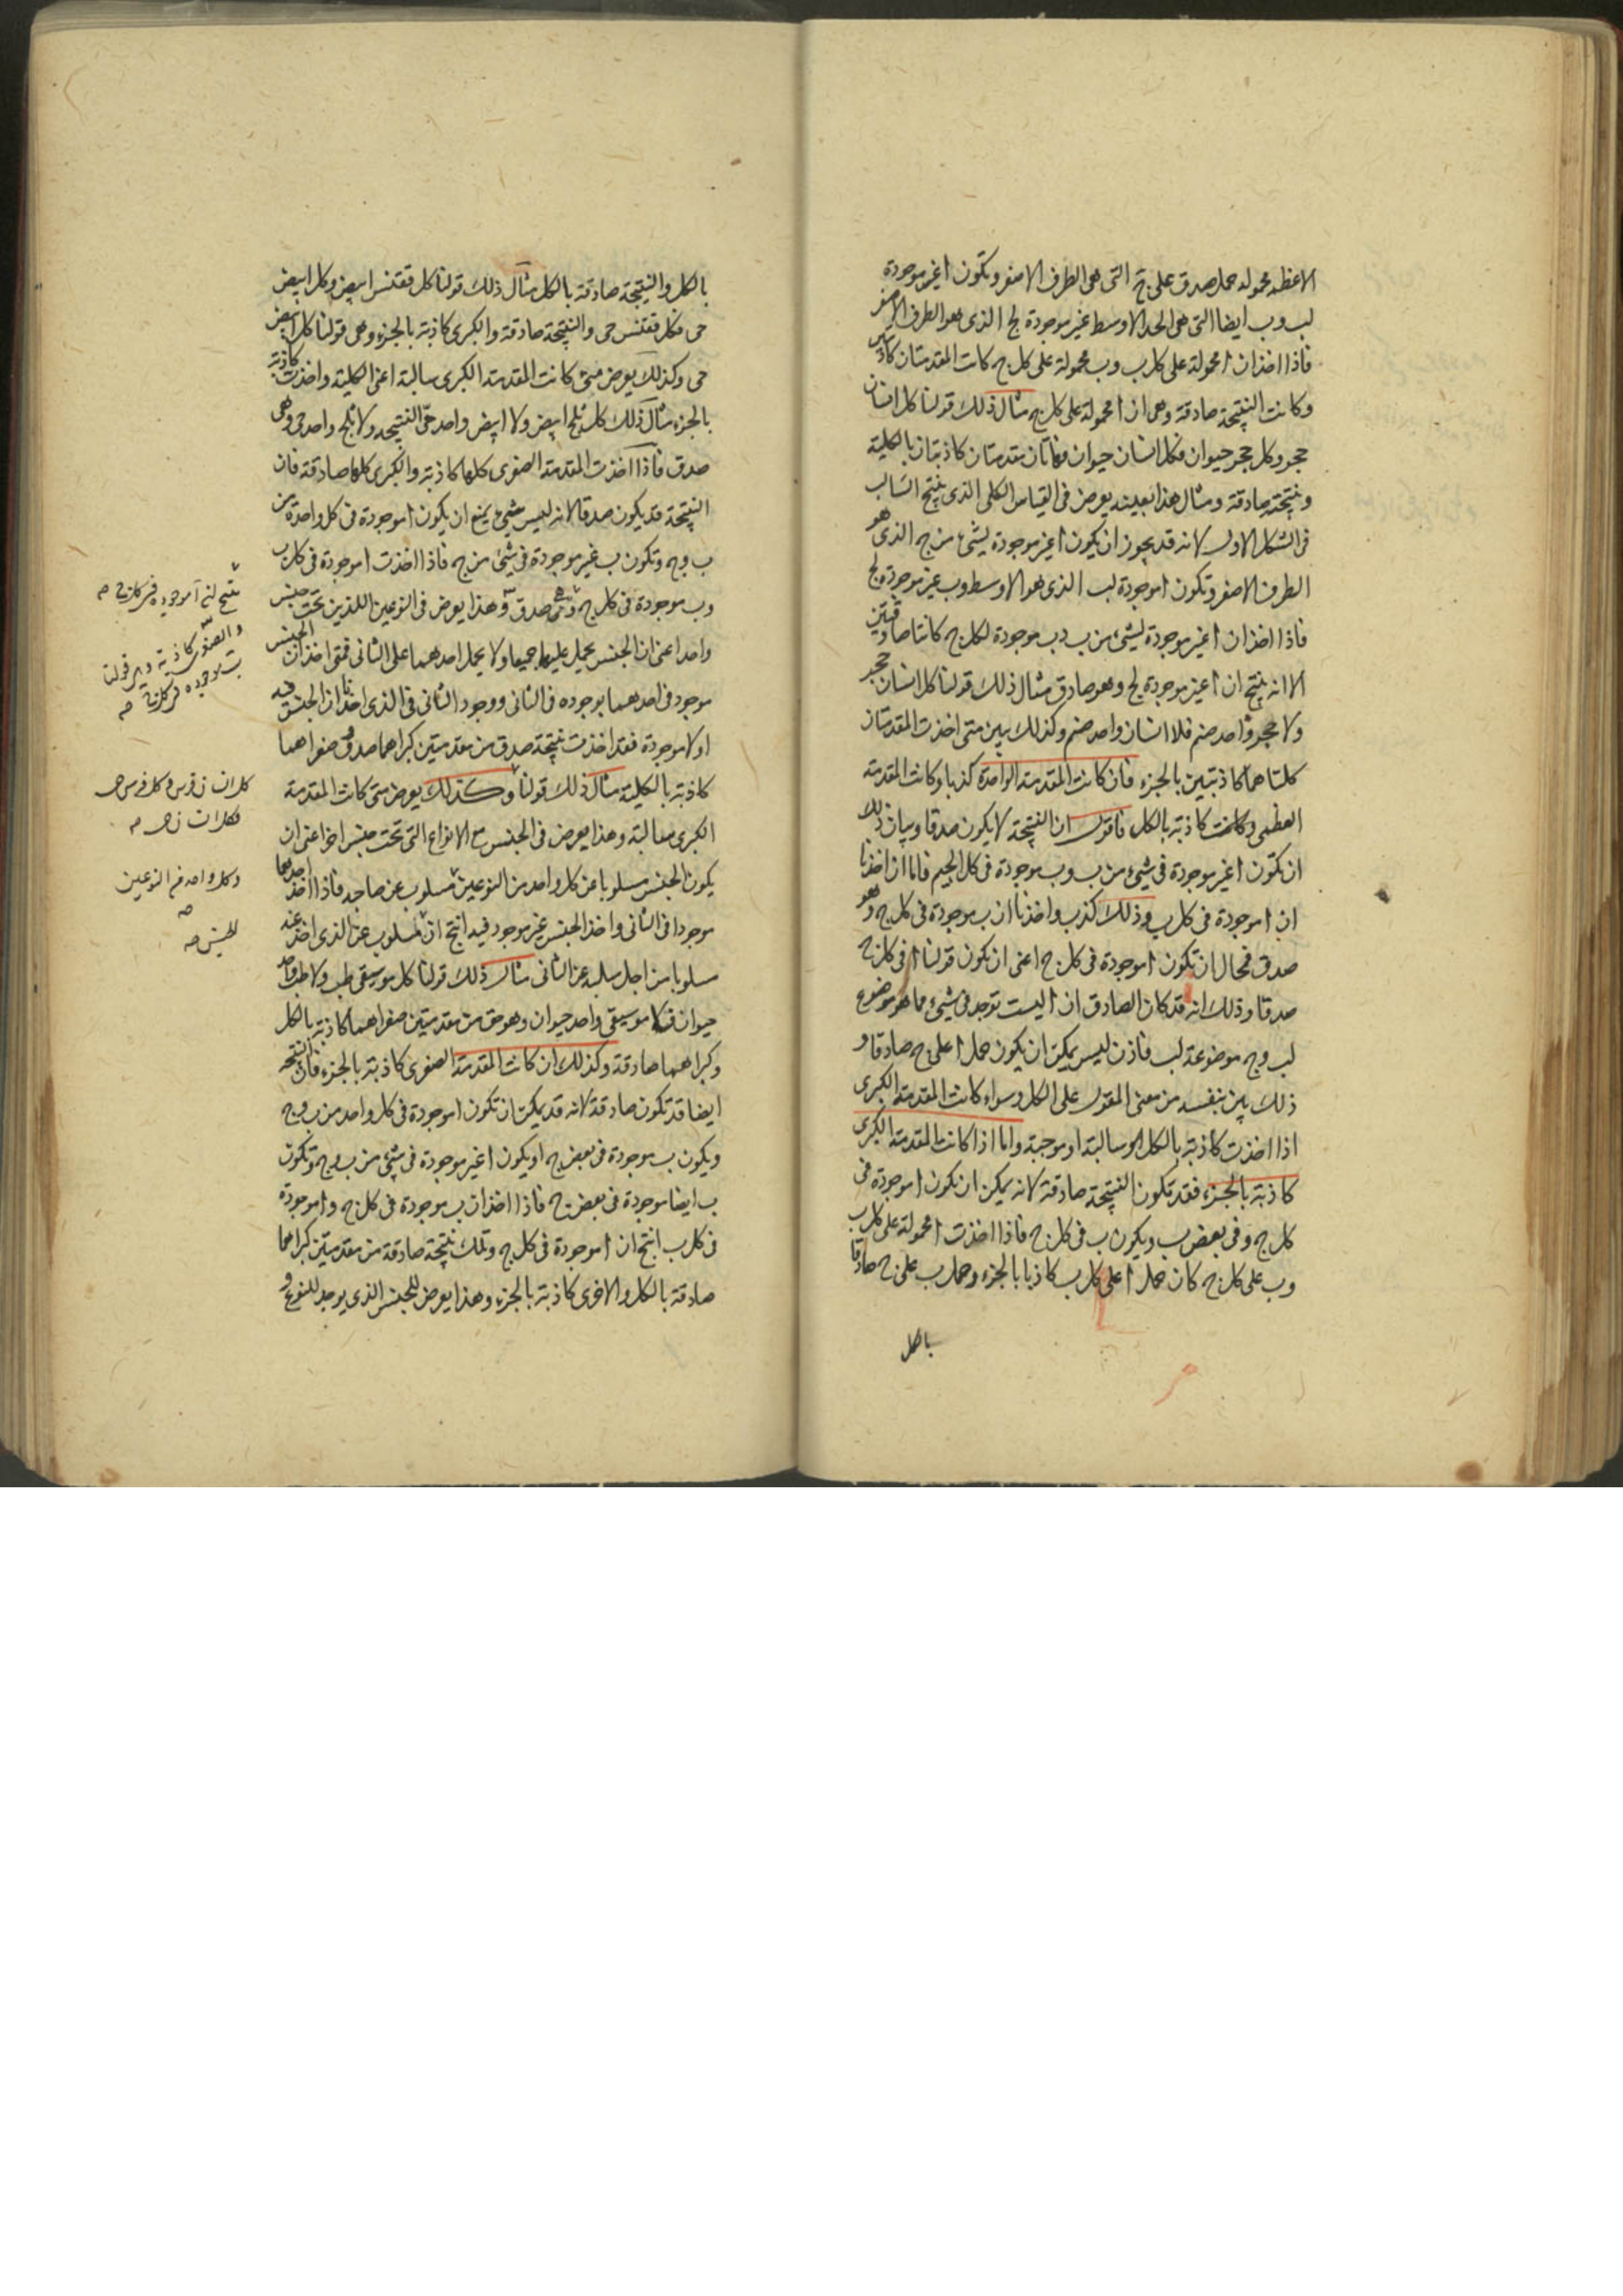 الاعظم محمولة حمل صدق على ج التى هى الطرف الاصغر وتكون ا غير موجودة
لب وب ايضا التى هى الحد الاوسط غير موجودة لج الذى هو الطرف الاصغر
فاذا اخذ ان ا محمولة على كل ب وب محمولة على كل ج كانت المقدمتان كاذبتين
وكانت النتيجة صادقة وهى ان ا محمولة على كل ج مثال ذلك قولنا كل انسان
حجر وكل حجر حيوان فكل انسان حيوان فهاتان مقدمتان كاذبتان بالكلية
ونتيجة صادقة ومثال هذا بعينه يعرض فى القياس الكلى الذى ينتج السالب
فى الشكل الاول لانه قد يجوز ان يكون ا غير موجودة لشىء من ج الذى هو
الطرف الاصغر وتكون ا موجودة لب الذى هو الاوسط وب غير موجودة لج
فاذا اخذ ان ا غير موجودة لشىء من ب وب موجودة لكل ج كانتا صادقتين
الا انه ينتج ان ا غير موجودة لج وهو صادق مثال ذلك قولنا كل انسان حجر
ولا حجر واحد صنم فلا انسان واحد صنم وكذلك يبين متى اخذت المقدمتان
كلتاهما كاذبتين بالجزء فان كانت المقدمة الواحدة كذبا وكانت المقدمة
العظمى وكانت كاذبة بالكل فاقول ان النتيجة لا يكون صدقا وبيان ذلك
ان تكون ا غير موجودة فى شىء من ب وب موجودة فى كل الجيم فاما ان اخذنا
ان ا موجودة فى كل ب وذلك كذب واخذنا ان ب موجودة فى كل ج وهو
صدق فمحال ان تكون ا موجودة فى كل ج اعنى ان يكون قولنا ا فى كل ج
صدقا وذلك انه قد كان الصادق ان ا ليست توجد فى شىء مما هو موضوع
لب وج موضوعة لب فاذن ليس يمكن ان يكون حمل ا على ج صادقا و
ذلك بين بنفسه من معنى المقول على الكل وسواء كانت المقدمة الكبرى
اذا اخذت كاذبة بالكل سالبة او موجبة واما اذا كانت المقدمة الكبرى
كاذبة بالجزء فقد تكون النتيجة صادقة لانه يمكن ان تكون ا موجودة فى
كل ج وفى بعض ب ويكون ب فى كل ج فاذا اخذت ا محمولة على كل ب
وب على كل ج كان حمل ا على كل ب كاذبا بالجزء وحمل ب على ج صادقا
بالكل
بالكل والنتيجة صادقة بالكل مثال ذلك قولنا كل ققنس ابيض وكل ابيض
حى فكل ققنس حى والنتيجة صادقة والكبرى كاذبة بالجزء وهى قولنا كل ابيض
حى وكذلك يعرض متى كانت المقدمة الكبرى سالبة اعنى الكلية واخذت كاذبة
بالجزء مثال ذلك كل ثلج ابيض ولا ابيض واحد حى النتيجة ولا ثلج واحد حى وهى
صدق فاذا اخذت المقدمة الصغرى كلها كاذبة والكبرى كلها صادقة فان
النتيجة قد يكون صدقا لانه ليس شىء يمنع ان يكون ا موجودة فى كل واحدة من
ب وج وتكون ب غير موجودة فى شىء من ج فاذا اخذت ا موجودة فى كل ب
وب موجودة فى كل ج وهى صدق وهذا يعرض فى النوعين اللذين تحت جنس
واحد اعنى ان الجنس يحمل عليهما جميعا ولا يحمل احدهما على الثانى فمتى اخذ ان الجنس
موجود فى احدهما بوجوده فى الثانى ووجود الثانى فى الذى اخذنا ان الجنس فيه
اولا موجودة فقد اخذت نتيجة صدق من مقدمتين كبراهما صدق وصغراهما
كاذبة بالكلية مثال ذلك قولنا وكذلك يعرض متى كانت المقدمة
الكبرى سالبة وهذا يعرض فى الجنس مع الانواع التى تحت جنس اخر اعنى ان
يكون الجنس مسلوبا عن كل واحد من النوعين مسلوب عن صاحبه فاذا اخذ احدهما
موجودا فى الثانى واخذ الجنس غير موجود فيه انتج ان مسلوب عن الذى اخذ عنه
مسلوبا من اجل سلبه عن الثانى مثال ذلك قولنا كل موسيقى طب ولا طب واحد
حيوان فلا موسيقى واحد حيوان وهو حق من مقدمتين صغراهما كاذبة بالكل
وكبراهما صادقة وكذلك ان كانت المقدمة الصغرى كاذبة بالجزء فان النتيجة
ايضا قد تكون صادقة لانه قد يمكن ان تكون ا موجودة فى كل واحد من ب وج
ويكون ب موجودة فى بعض ج او يكون ا غير موجودة فى شىء من ب وج وتكون
ب ايضا موجودة فى بعض ج فاذا اخذ ان ب موجودة فى كل ج وا موجودة
فى كل ب انتج ان ا موجودة فى كل ج وتلك نتيجة صادقة من مقدمتين كبراهما
صادقة بالكل والاخرى كاذبة بالجزء وهذا يعرض للجنس الذى يوجد للنوع و
ينتج ان ا موجودة فى كل ج صح
والصغرى كاذبة وهى قولنا
ب موجودة فى كل ج صح
كل انسان فرس وكل فرس حى
فكل انسان حى صح
وكل واحد من النوعين
صح
الجنس صح